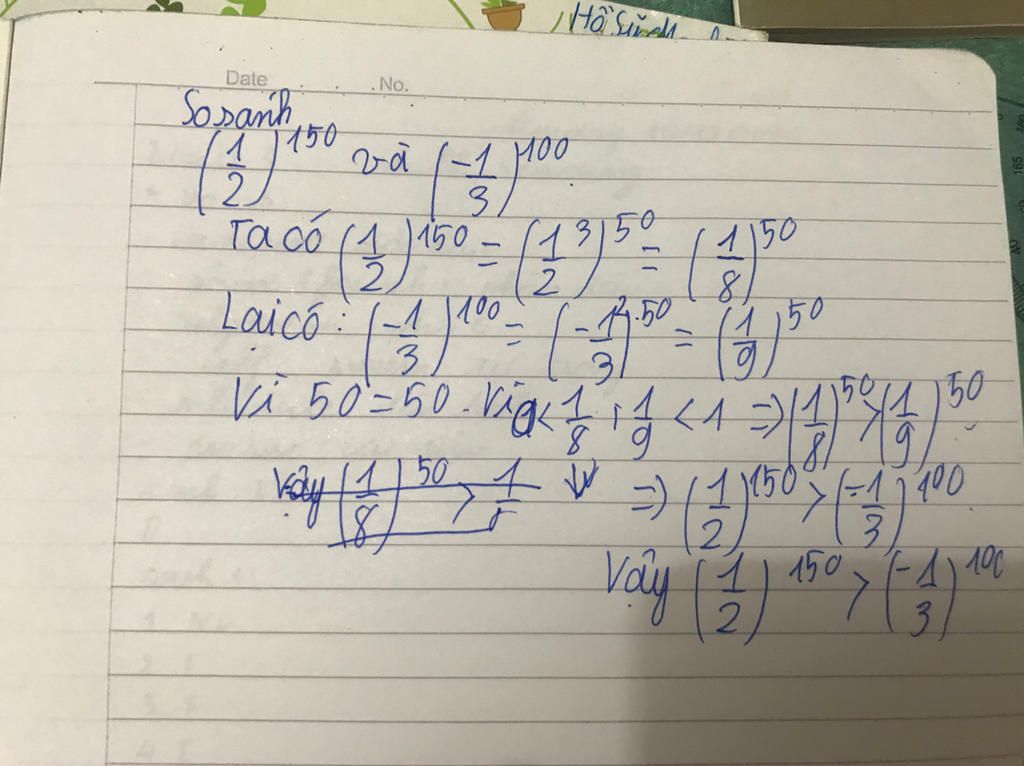 Hồ Sinh
Date . . . No.
So sánh
(1/2)^150 và (-1/3)^100
Ta có (1/2)^150 = (1/2^3)^50 = (1/8)^50
Lại có: (-1/3)^100 = (-1/3)^2.50 = (1/9)^50
Vì 50 = 50. Vì 0 < 1/8, 1/9 < 1 => (1/8)^50 > (1/9)^50
Vậy (1/8)^50 > 1/ => (1/2)^150 > (-1/3)^100
Vậy (1/2)^150 > (-1/3)^100